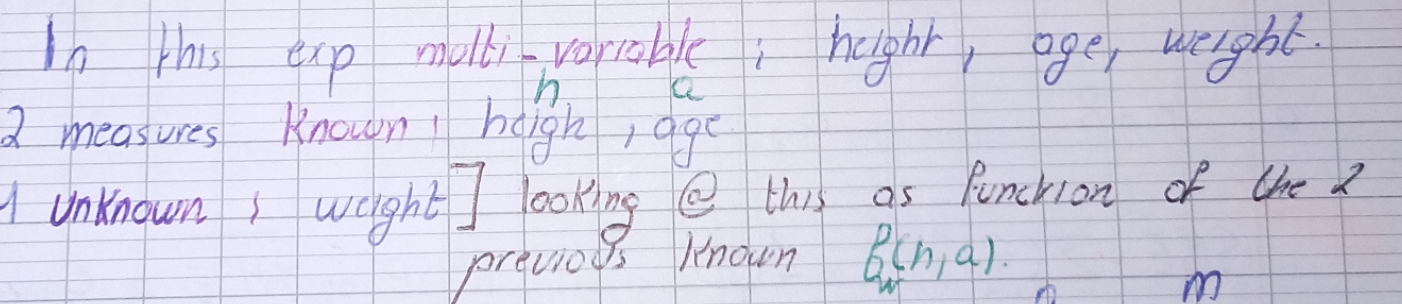 In this exp multi-variable ; height, age, weight.
h a
2 measures known ; heigh, age
1 unknown ; weight] looking @ this as function of the 2
previous known f_w(h,a).
n m